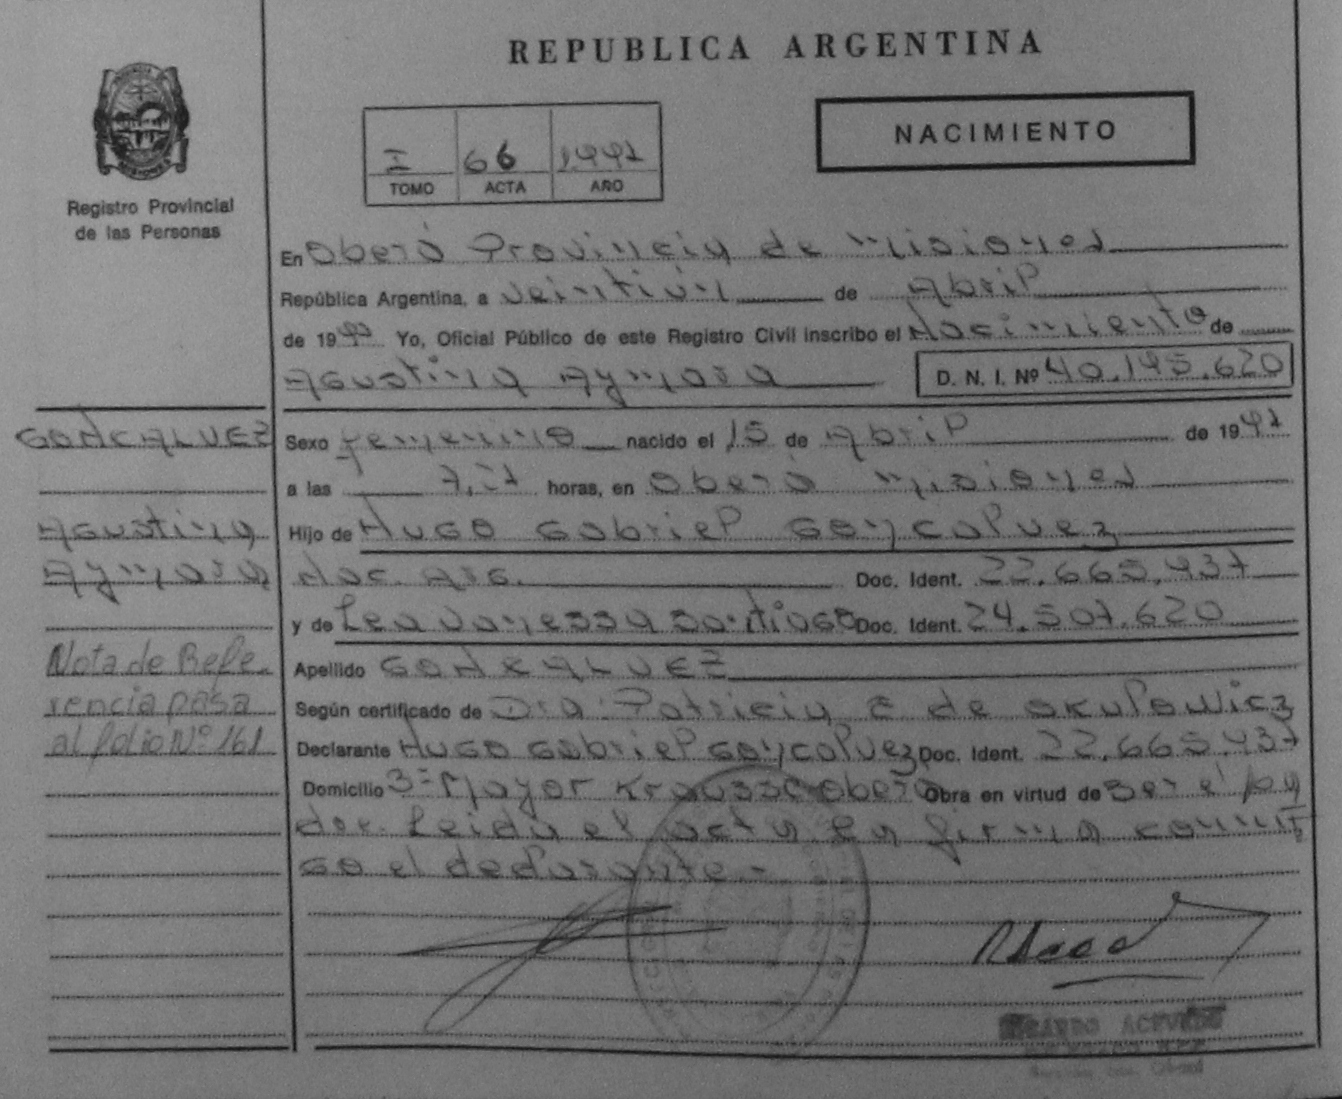 REPUBLICA ARGENTINA
NACIMIENTO
I 66 1997
TOMO ACTA AÑO
Registro Provincial
de las Personas
En Oberá Provincia de Misiones
República Argentina, a veintiún de Abril
de 19 Yo, Oficial Público de este Registro Civil inscribo el Nacimiento de
Agustina Aymara D. N. I. Nº 40.195.620
GONCALVEZ
Sexo femenino nacido el 15 de Abril de 1997
a las horas, en Oberá Misiones
Agustina
Hijo de Hugo Gabriel Goncalvez
Aymara
Nac. Arg. Doc. Ident. 22.665.937
y de Lea Vanessa Santiago Doc. Ident. 24.507.620
Nota de Refe-
rencia pasa
al folio Nº 161
Apellido GONCALVEZ
Según certificado de Dra. Patricia E de Okulowicz
Declarante Hugo Gabriel Goncalvez Doc. Ident. 22.665.937
Domicilio Mayor Krausse Oberá Obra en virtud de Ser el pa
dre. Leida el acta la firma conmi
go el declarante -
ACEVEDO